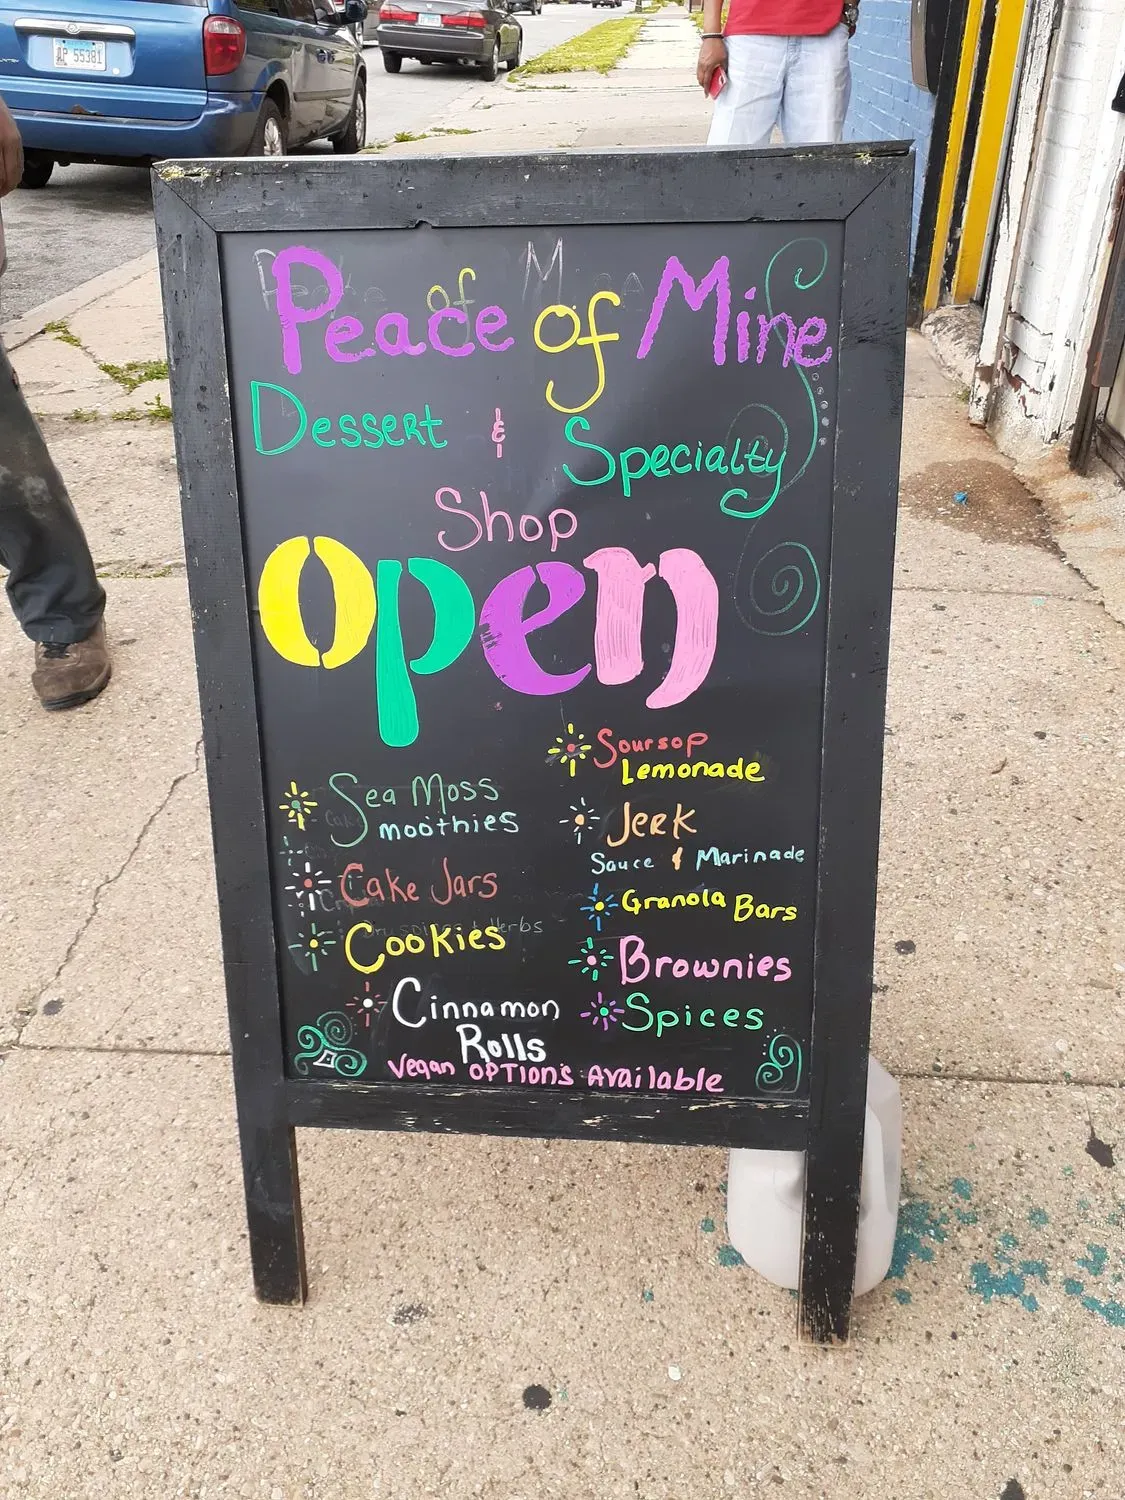 Peace of Mine
Dessert & Specialty
Shop
open
Sea Moss
Smoothies
Cake Jars
Cookies
Cinnamon
Rolls
Soursop
Lemonade
Jerk
Sauce & Marinade
Granola Bars
Brownies
Spices
Vegan OPTIONS Available